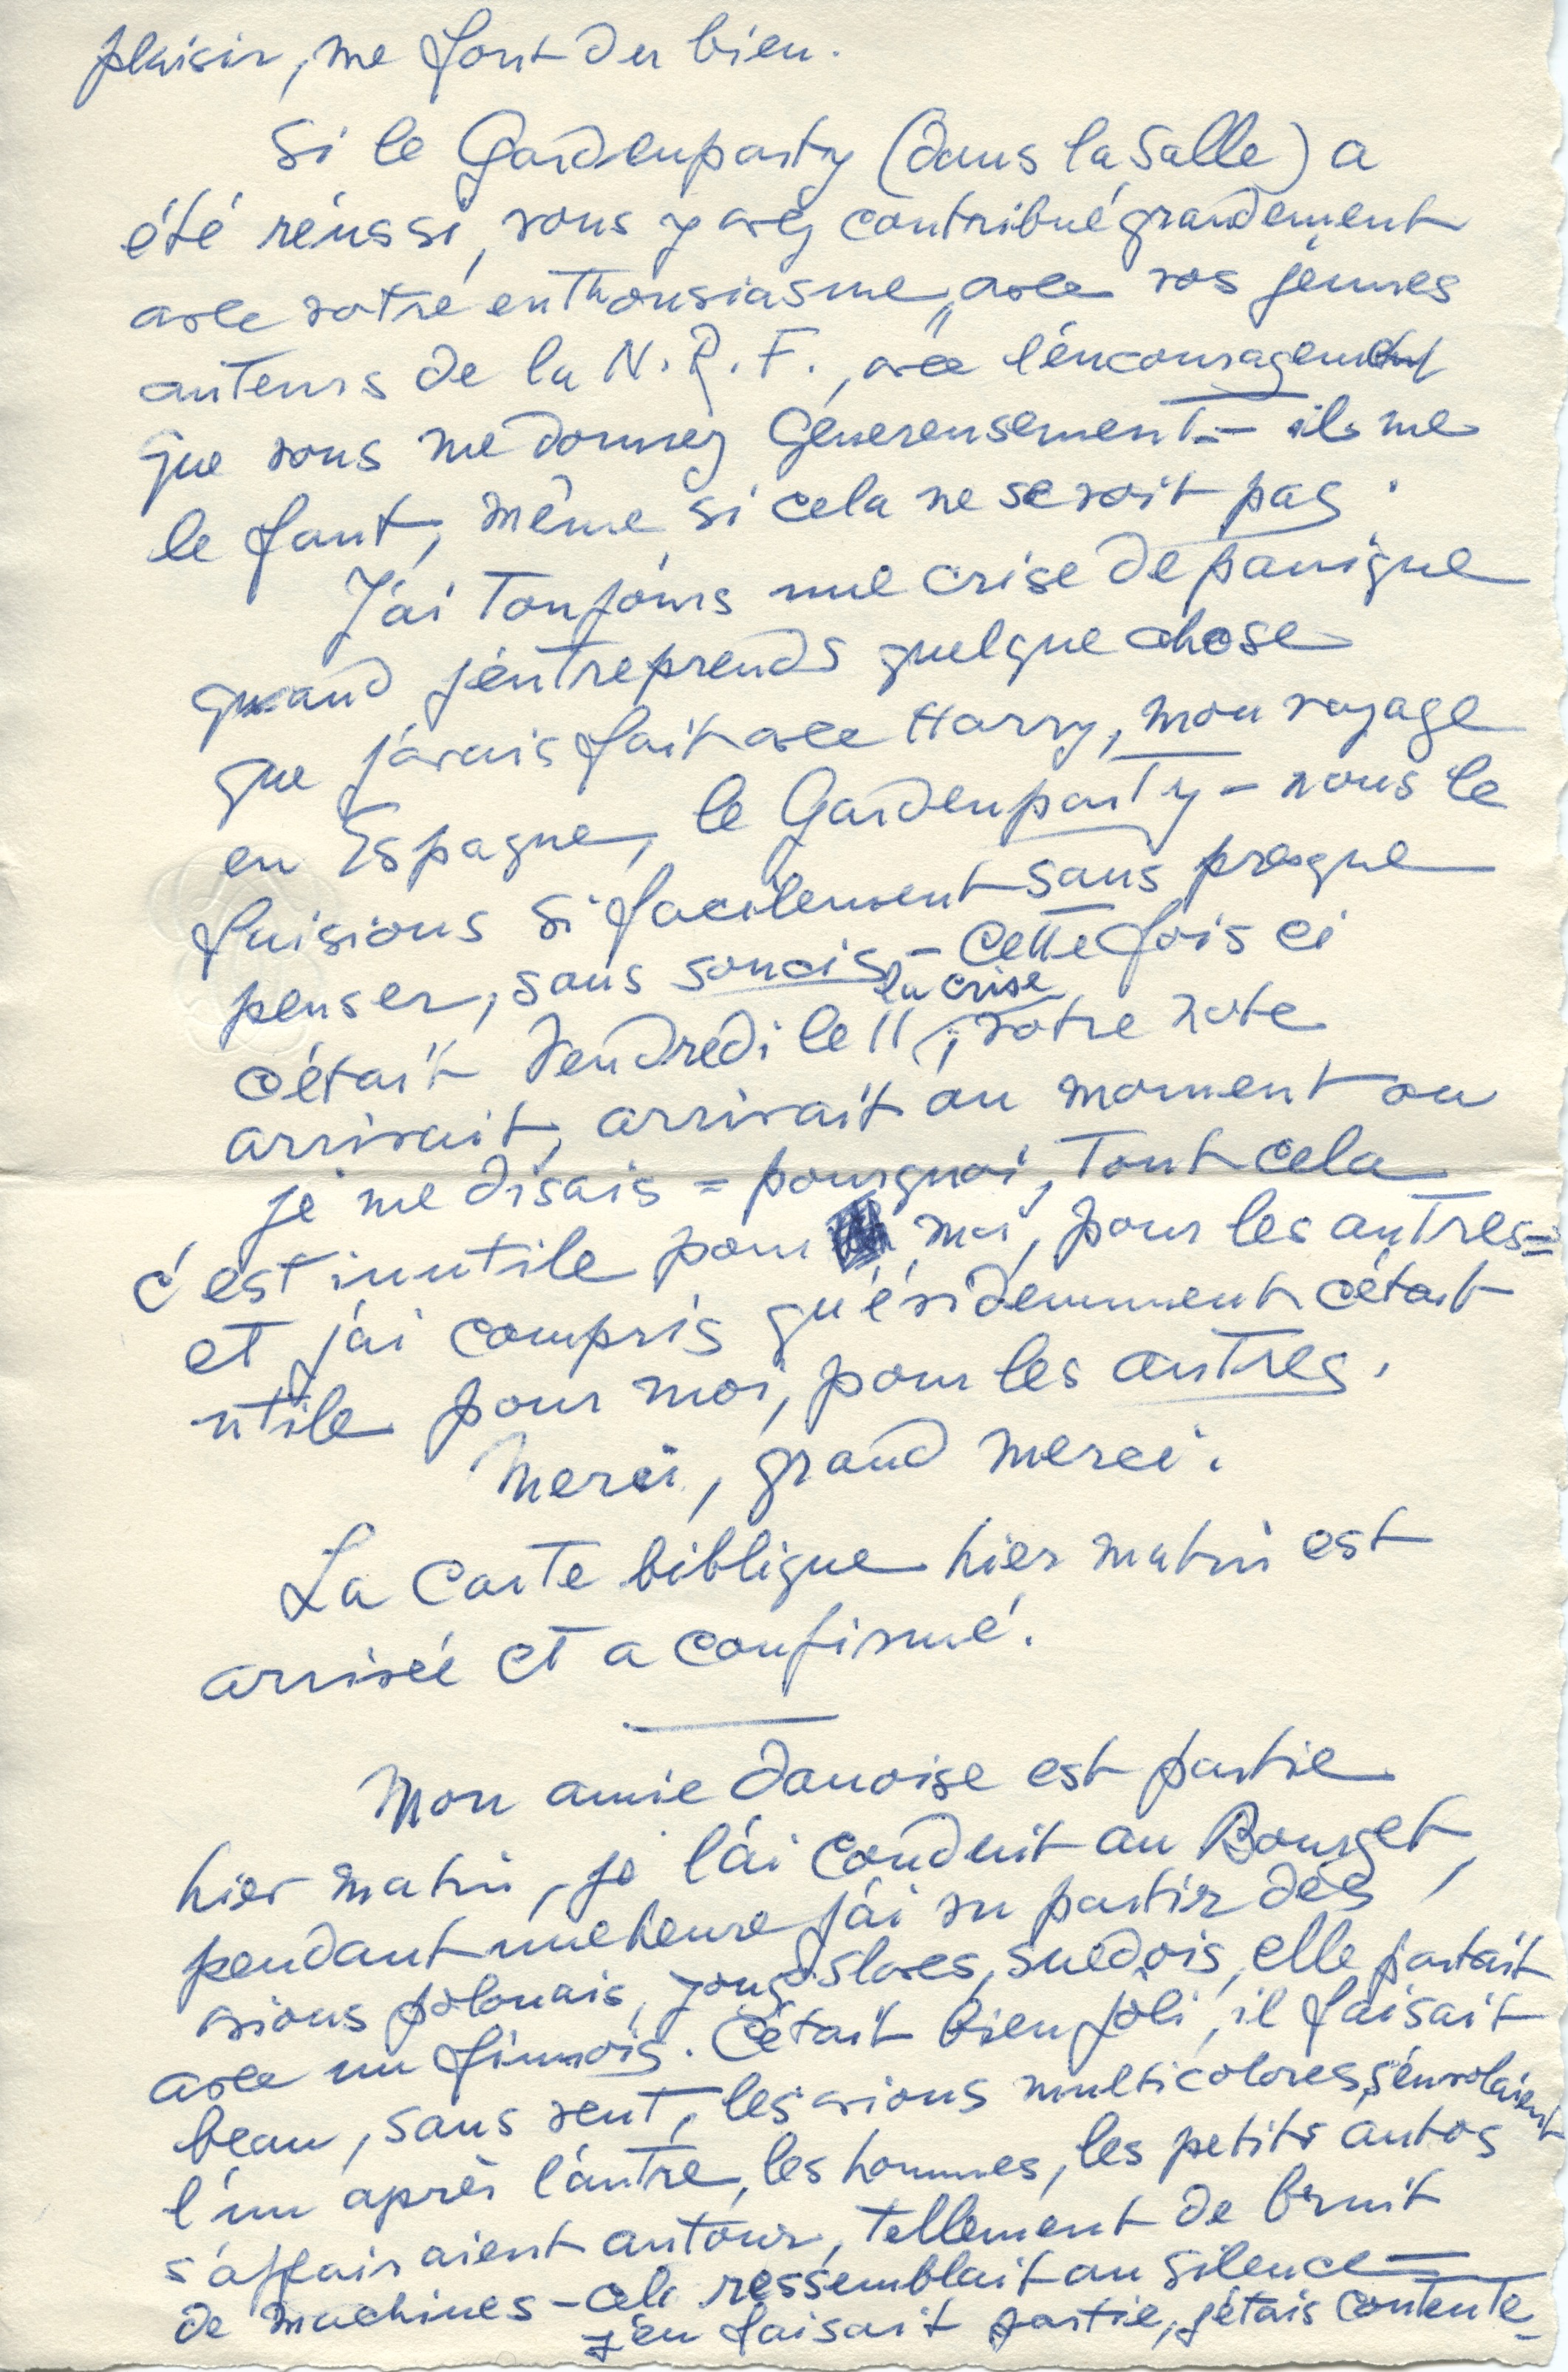 plaisir, me font du bien.
Si le Gardenparty (dans la Salle) a
été réussi, vous y avez contribué grandement
avec votre enthousiasme, avec vos jeunes
auteurs de la N.R.F., avec l'encouragement
que vous me donnez généreusement – il me
le faut, même si cela ne se voit pas.
J'ai toujours une crise de panique
quand j'entreprends quelque chose
que j'avais fait avec Harry, mon voyage
en Espagne, le Gardenparty – nous le
faisions si facilement sans presque
penser, sans soucis – Cette fois ci
la crise
c'était Vendredi le 11, votre note
arrivait, arrivait au moment ou
je me disais = pourquoi, tout cela
c'est inutile pour moi, pour les autres =
et j'ai compris qu'évidemment c'était
utile pour moi, pour les autres.
Merci, grand merci.
La Carte biblique hier matin est
arrivée et a confirmé.
Mon amie danoise est partie
hier matin, je l'ai conduit au Bourget,
pendant une heure j'ai vu partir des
avions polonais, yougoslaves, suedois, elle partait
avec un finnois. C'était bien joli, il faisait
beau, sans vent, les avions multicolores s'envolaient
l'un après l'autre, les hommes, les petits autos
s'affairaient autour, tellement de bruit
de machines – cela ressemblait au silence =
j'en faisait partie, j'étais contente –